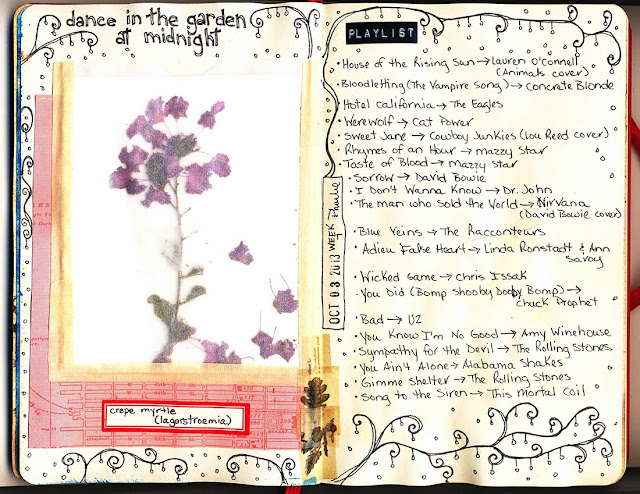 dance in the garden
at midnight
crepe myrtle
(lagerstroemia)
PLAYLIST
• House of the Rising Sun → Lauren O'Connell
(Animals cover)
• Bloodletting (The Vampire Song) → Concrete Blonde
Hotel California → The Eagles
• Werewolf → Cat Power
• Sweet Jane → Cowboy Junkies (Lou Reed cover)
• Rhymes of an Hour → Mazzy Star
• Taste of Blood → Mazzy Star
• Sorrow → David Bowie
• I Don't Wanna Know → Dr. John
• The Man who sold the World → Nirvana
(David Bowie cover)
• Blue Veins → The Raconteurs
• Adieu False Heart → Linda Ronstadt & Ann
Savoy
• Wicked Game → Chris Issak
• You Did (Bomp Shooby Dooby Bomp) →
Chuck Prophet
• Bad → U2
• You Know I'm No Good → Amy Winehouse
• Sympathy for the Devil → The Rolling Stones
• You Ain't Alone → Alabama Shakes
• Gimme Shelter → The Rolling Stones
• Song to the Siren → This Mortal Coil
OCT 03 2013 WEEK